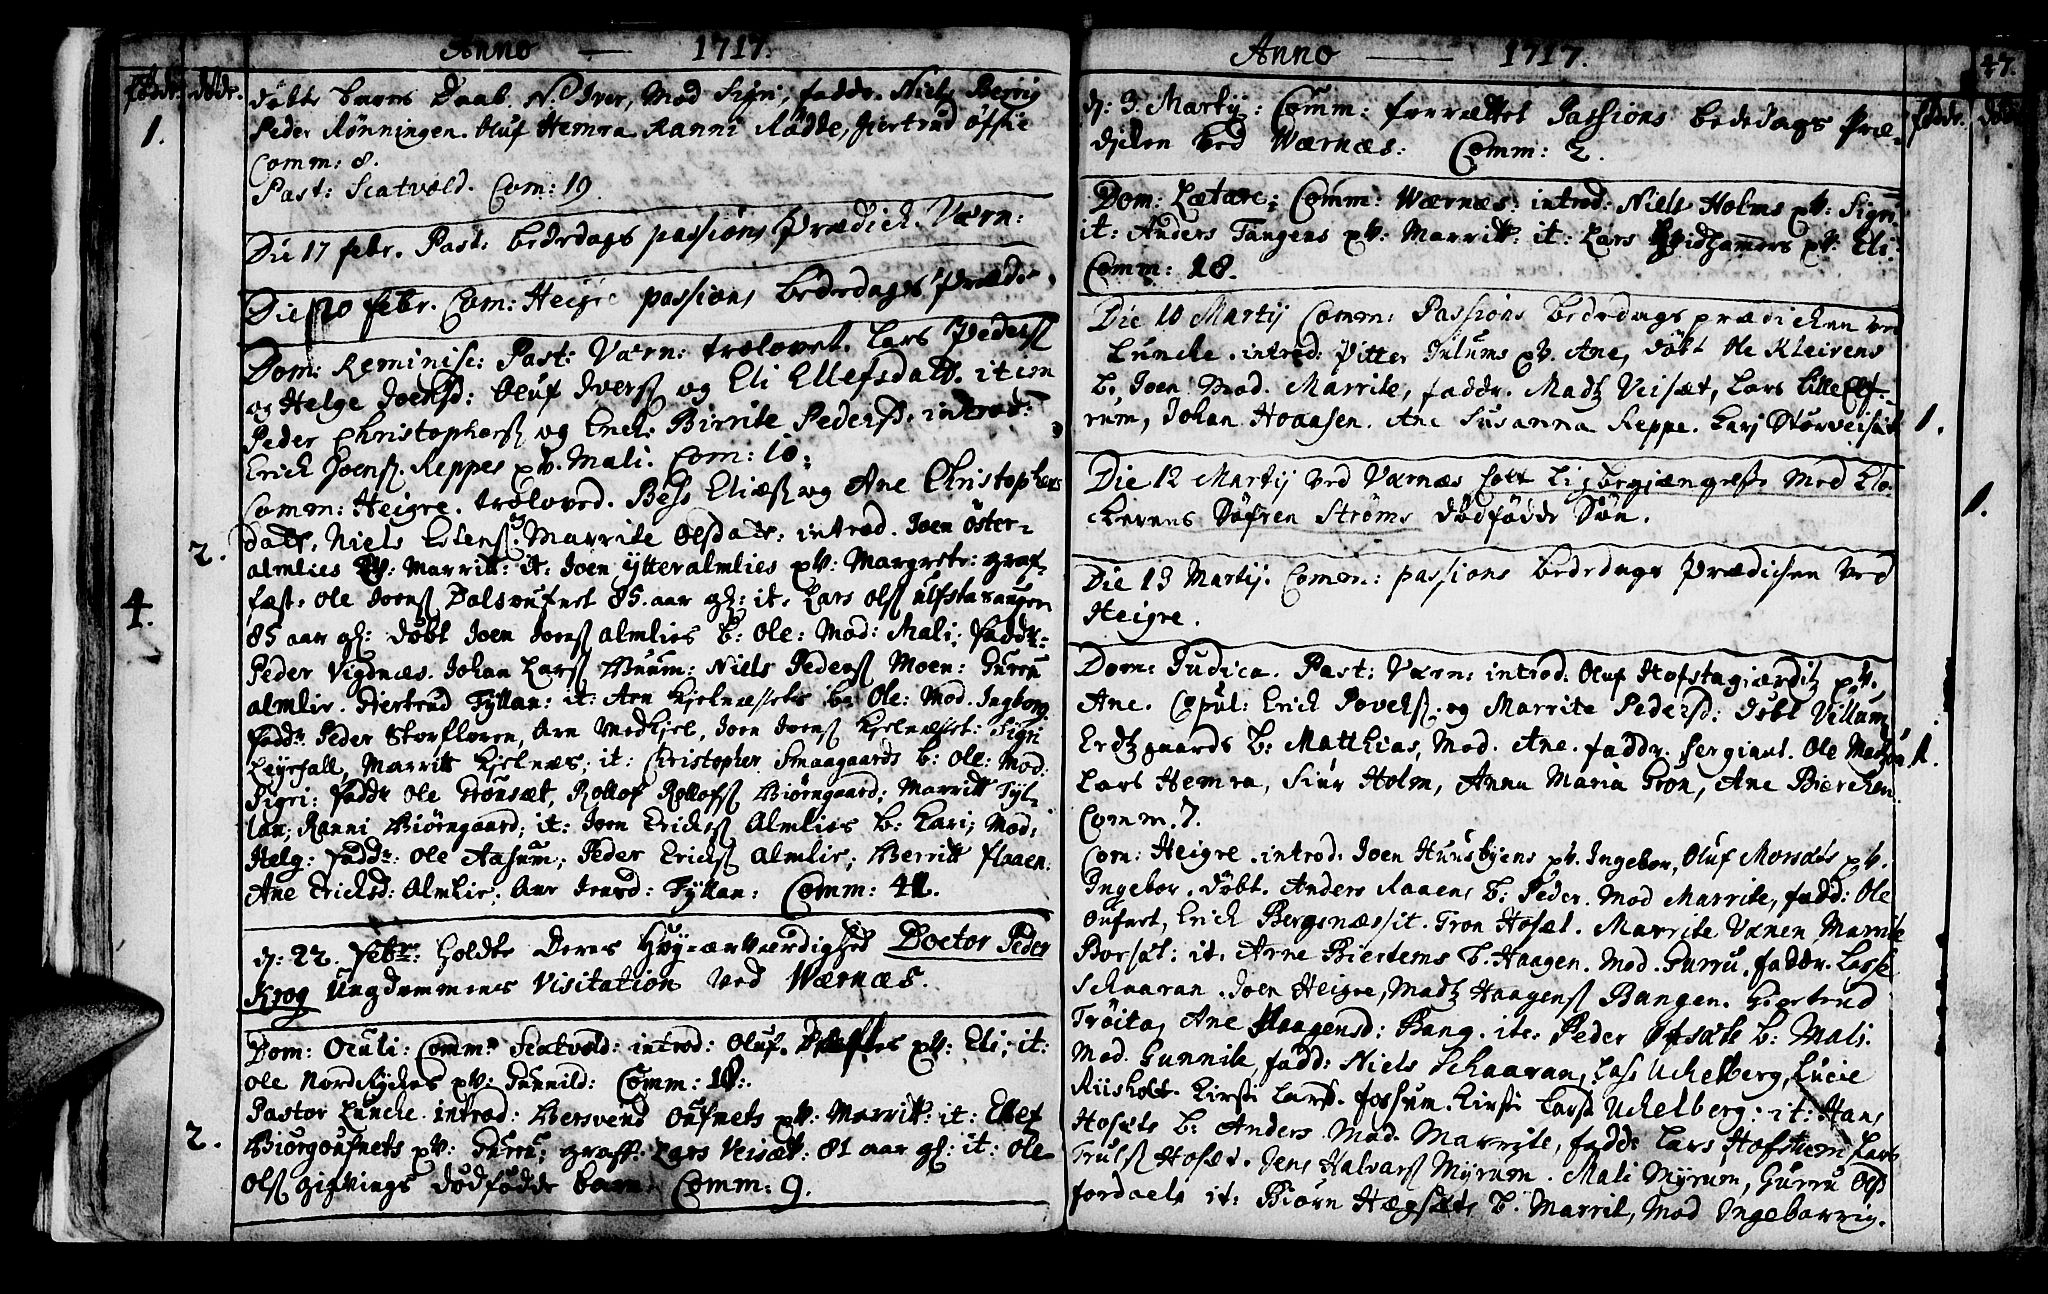 Anno — 1717.
födde. döde.
döbte barns Daab. N. Iver, Mod Sigri, faddr. Niels Berrig
1. Peder Rønningen. Oluf Hemra Ranni Rödde, Giertrud
Comm: 8.
Past: Scatvold. Com: 19.
Die 17 febr. Past: bededags passions Prædick. Værn:
Die 20 febr. Com: Heigre passions bededags Præd:
Dom: Reminisc: Past: Værn: trolovet. Lars Peders:
og Helge Joensd: Oluf Ivers: og Eli Ellefsdatt. item
Peder Christophers: og Enck. Birrite Peders: introd:
Erich Joens. Reppes pt. Mali. Com: 10:
Comm: Heigre. troloved. Bess Elies: og Ane Christophers
datt. Niels Estens: Marrite Olsdatt: introd. Joen öster-
2. almlies pt: Marritt: it: Joen ytteralmlies pt: Margrete: graf-
fæst. ole Joens: Dalsoufnet 85. aar gl: it. Lars ols ulfstavaugen
4. 85 aar gl: döbt Joen Joens almlies b: Ole: Mod: Mali: faddr:
Peder Vigdnæs. Johan Lars: Buum: Niels Peders: Moen: Gurru
almlie. Giertrud Fyllan: it: Arn Kielnæssets b: Ole: Mod. Ingborg
faddr: Peder Storfloren, Arn Medkiel, Joen Joens: Kielnæsset: Sigri
Leyrfall, Marritt Kielnæs; it: Christopher Smaagaards b: Ole: Mod:
Sigri: faddr Ole Grönsæt, Rollof Rollofs: Biörngaard; Marritt Fyl-
lan; Ranni Biörngaard; it: Joen Ericks: Almlies b: Kari; Mod:
Helg: faddr: Ole Aasum; Peder Ericks: Almlie; Berritt flaaen:
Ane Ericksd: Almlie; Ane Joensd: Fyllan: Comm: 41.
d: 22. febr: holdte Deres Höyærværdighed Doctor Peder
Krog Ungdommens Visitation ved Wærnæs.
Dom: Oculi: Comm: Scatvold: introd: Oluf. pt: Eli; it:
Ole Nordkykes pt: Gunnild: Comm: 18:
Pastor Luncke. introd: Bersvend Oufnets pt: Marritt: it: Ellef
2. Biörgoufnets pt: Gurru; graff: Lars Veisæt: 81 aar gl: it: Ole
Ols: gifvings dödfödde barn. Comm: 9.
Anno — 1717. 47.
födde. döde
d: 3 Martij: Comm: forrættet Passions bededags Præ-
dicken ved Wærnæs: Comm: 2.
Dom: Lætare; Comm: Wærnæs: introd: Niels Holms pt: Sigri.
it: Anders Tangens pt: Marritt: it: Lars Hvidhamers pt: Eli:
Comm: 18.
Die 10 Martij Comm: Passions bededags prædicken ved
Luncke. introd: Pitter Julums pt. Ane, döbt Ole Kleivens
b. Joen Mod. Marrite, faddr. Madtz Veisæt, Lars lilleElf-
rum, Johan Hoaasen. Ane Susanna Reppe. Karj Storveisæt 1.
Die 12 Martij ved Værnæs holt ligbegiængelse med Klo-
ckerens Söfren Ströms dödfödde Sön. 1.
Die 13 Martij. Comm: passions bededags Prædicken ved
Heigre.
Dom: Judica. Past: Værn: introd: Oluf Hofstagiærdtz pt.
Ane. Copul: Erich Povels: og Marrite Pedersd: Döbt Villum
Erdtzgaards b: Matthias, Mod. Ane. faddr. Sergiant. Ole 1.
Lars Hemra, Siur Holm, Anna Maria Tron, Ane Bierchen.
Comm. 7.
Com: Heigre. introd: Joen Huusbyens pt. Ingebor, Oluf Morsets pt.
Ingebor. döbt. Anders Raaens b: Peder. Mod Marrite, fadd: Ole
Oufnet, Erich Bergsnæs it. Tron Hofset. Marrite Vænen, Marrite
Borsæt: it. Arne Biertems b. Haagen. Mod. Gurru. faddr. Lasse
Schaaran. Joen Heigre, Madtz Haagens: Bangen. Giertrud
Tröita, Ane Haagensd: Bang. ite. Peder Ofsæts b: Mali.
Mod. Gunnile, fadd: Niels Schaaran, Lass Uchelberg, Lucie
Riisholt. Kirsti Larsd. fossum. Kirsti Larsd Uchelberg: it: Hans
Hofsets b: Anders Mod. Marrite, fadd: Lars Hofshem Lars
Truls: Hofset. Jens Halvars: Myrum. Mali Myrum, Gurru Olsd
fordaels it: Biörn Hægsets b. Marrit, Mod Ingeborrig.